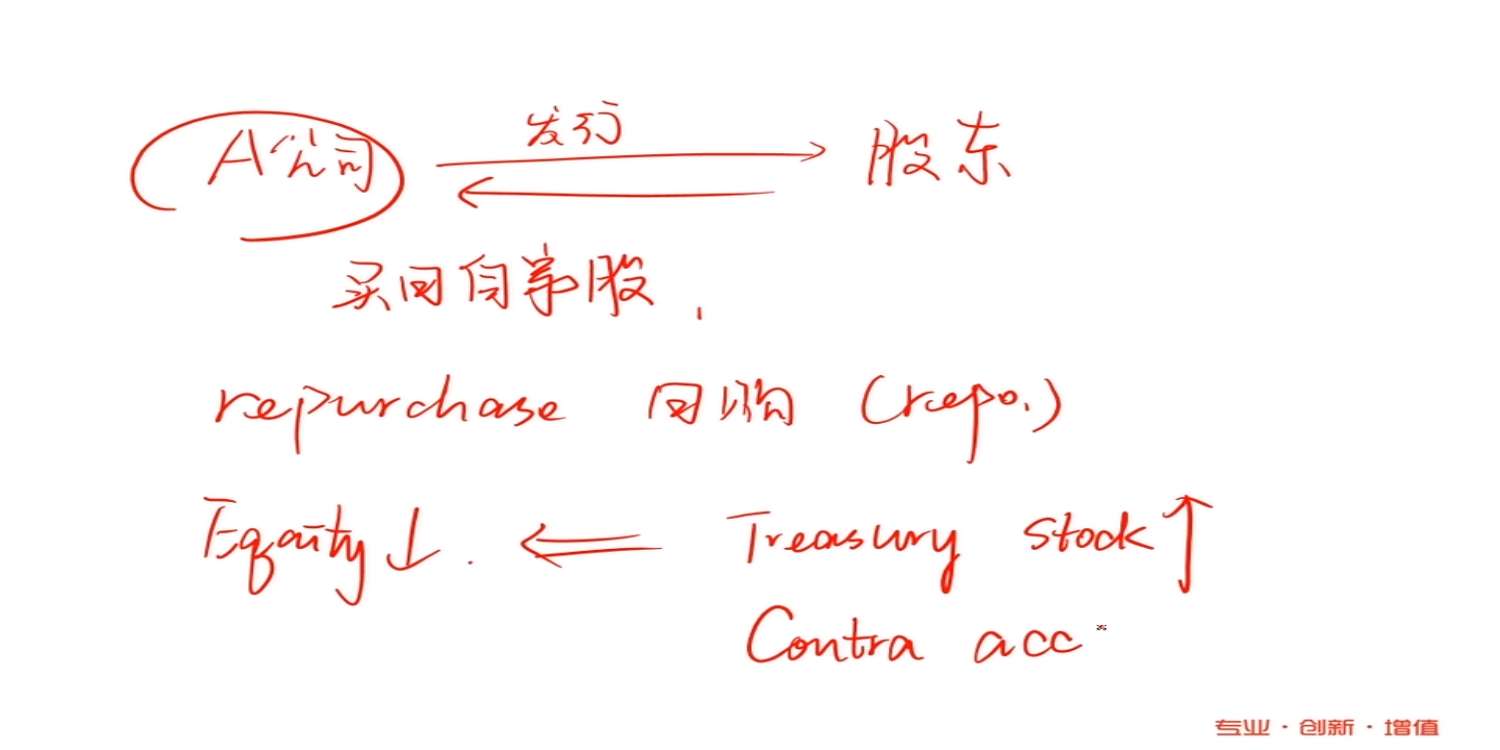 发行
A公司 股东
买回自家股,
repurchase 回购 (repo.)
Equity↓. ⇐ Treasury stock↑
Contra acc
专业·创新·增值